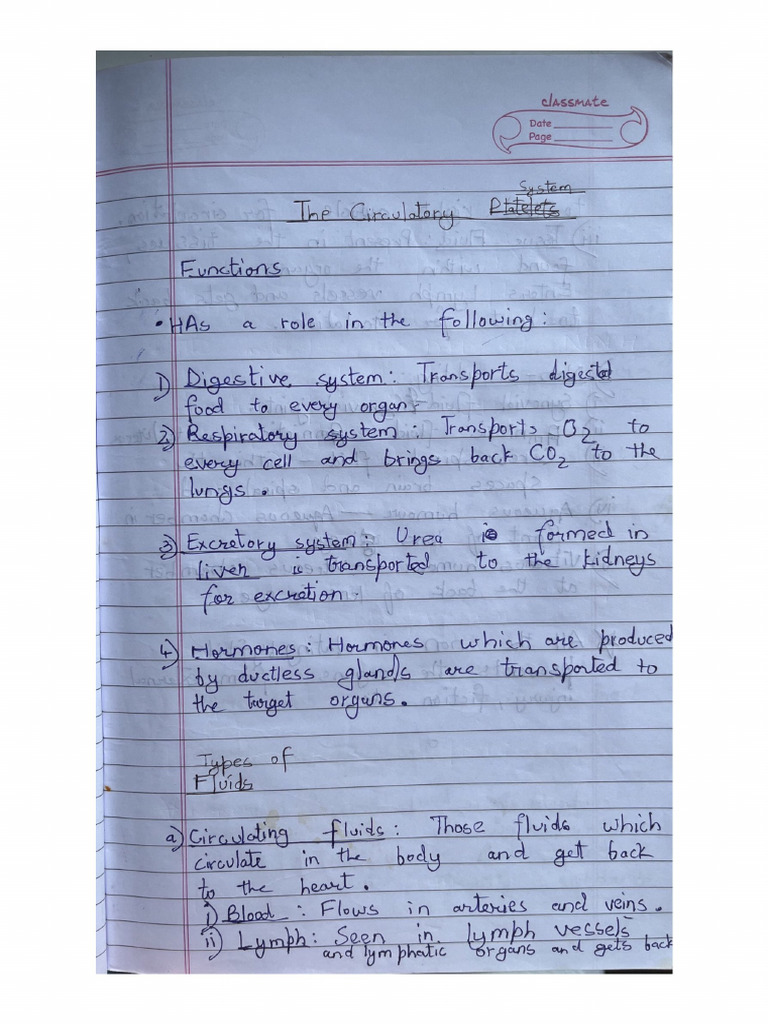 classmate
Date
Page
System
The Circulatory Platelets
Functions
• HAs a role in the following :
1) Digestive system : Transports digested
food to every organ.
2) Respiratory system : Transports O2 to
every cell and brings back CO2 to the
lungs.
3) Excretory system : Urea is formed in
liver is transported to the kidneys
for excretion.
4) Hormones : Hormones which are produced
by ductless glands are transported to
the target organs.
Types of
Fluids
a) Circulating fluids : Those fluids which
circulate in the body and get back
to the heart.
i) Blood : Flows in arteries and veins.
ii) Lymph : Seen in lymph vessels
and lymphatic organs and gets back